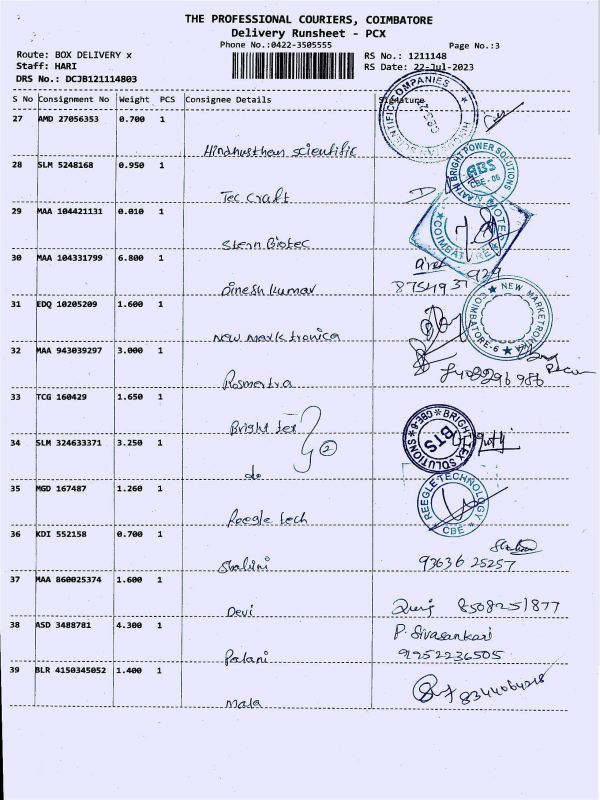 THE PROFESSIONAL COURIERS, COIMBATORE
Delivery Runsheet - PCX
Phone No.:0422-3505555
Page No.:3
Route: BOX DELIVERY x
RS No.: 1211148
Staff: HARI
RS Date: 22-Jul-2023
DRS No.: DCJB121114803
S No Consignment No Weight PCS Consignee Details Signature
27 AMD 27056353 0.700 1
Hindhusthan scientific
28 SLM 5248168 0.950 1
BRIGHT POWER SOLUTIONS
ABS
CBE - 06
Tec Craft
29 MAA 104421131 0.010 1
COIMBATORE
Stern Biotec
30 MAA 104331799 6.800 1
Dinesh kumar
31 EDQ 10205209 1.600 1
NEW MARKETRON
COIMBATORE-6
new mark tronica
32 MAA 943039297 3.000 1
33 TCG 160429 1.650 1
Bright tex
BRIGHT TEX SOLUTIONS
BTS
CBE-6
34 SLM 324633371 3.250 1
2
do
35 MGD 167487 1.260 1
REEGLE TECHNOLOGY
CBE
Reegle tech
36 KDI 552158 0.700 1
Shalini
93636 25257
37 MAA 860025374 1.600 1
Devi
8508251877
38 ASD 3488781 4.300 1
P. Sivasankari
Palani
9952236505
39 BLR 4150345052 1.400 1
8344064218
mala